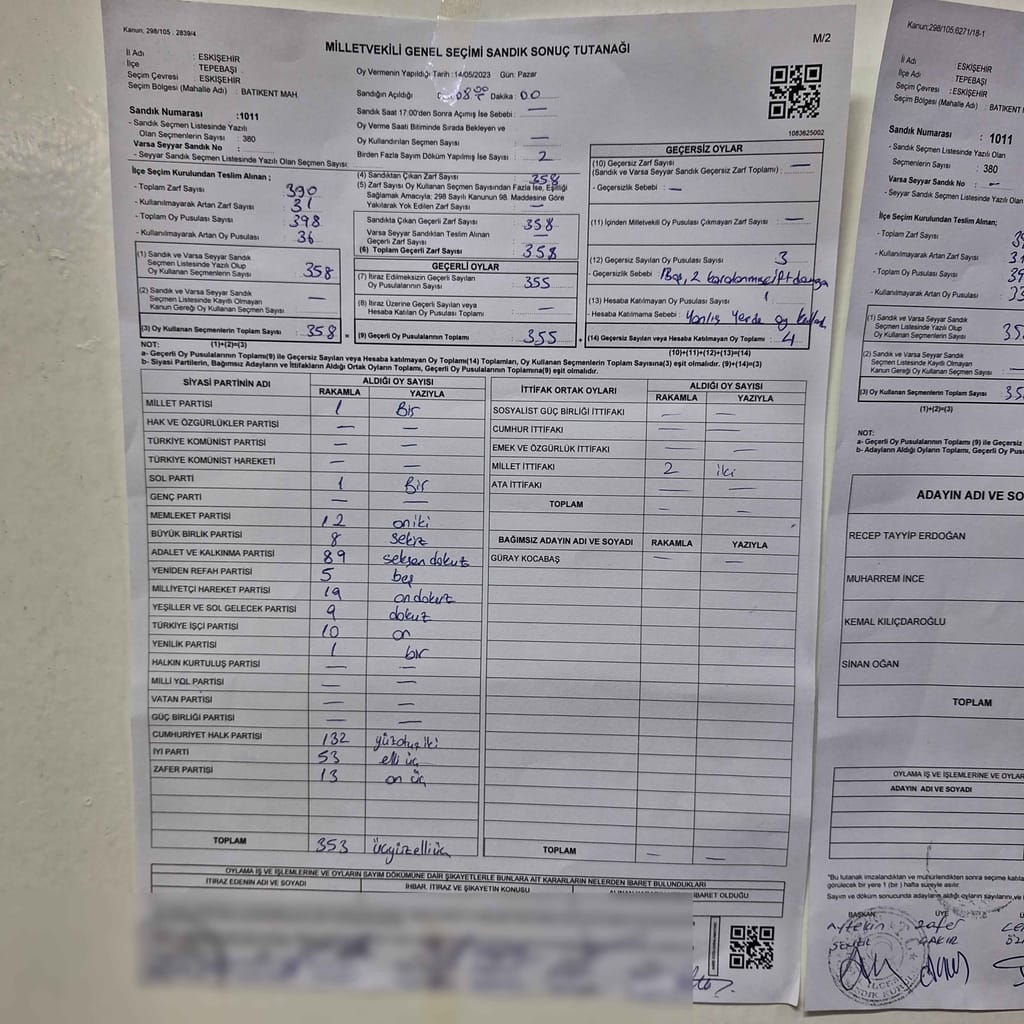 Kanun: 298/105 , 2839/4
MİLLETVEKİLİ GENEL SEÇİMİ SANDIK SONUÇ TUTANAĞI
M/2
İl Adı : ESKİŞEHİR
İlçe : TEPEBAŞI
Seçim Çevresi : ESKİŞEHİR
Seçim Bölgesi (Mahalle Adı) : BATIKENT MAH
Oy Vermenin Yapıldığı Tarih : 14/05/2023 Gün: Pazar
Sandığın Açıldığı Dakika : 00
Sandık Saat 17.00'den Sonra Açımış İse Sebebi : —
Oy Verme Saati Bitiminde Sırada Bekleyen ve
Oy Kullandırılan Seçmen Sayısı : —
Birden Fazla Sayım Döküm Yapılmış İse Sayısı : 2
1083625002
Sandık Numarası :1011
- Sandık Seçmen Listesinde Yazılı
Olan Seçmenlerin Sayısı : 380
Varsa Seyyar Sandık No :
- Seyyar Sandık Seçmen Listesinde Yazılı Olan Seçmen Sayısı:
İlçe Seçim Kurulundan Teslim Alınan ;
- Toplam Zarf Sayısı : 390
- Kullanılmayarak Artan Zarf Sayısı : 31
- Toplam Oy Pusulası Sayısı : 398
- Kullanılmayarak Artan Oy Pusulası : 36
(1) Sandık ve Varsa Seyyar Sandık
Seçmen Listesinde Yazılı Olup
Oy Kullanan Seçmenlerin Sayısı : 358
(2) Sandık ve Varsa Seyyar Sandık
Seçmen Listesinde Kayıtlı Olmayan
Kanun Gereği Oy Kullanan Seçmen Sayısı : —
(3) Oy Kullanan Seçmenlerin Toplam Sayısı : 358
(1)+(2)=(3)
(4) Sandıktan Çıkan Zarf Sayısı : 358
(5) Zarf Sayısı Oy Kullanan Seçmen Sayısından Fazla İse, Eşitliği
Sağlamak Amacıyla; 298 Sayılı Kanunun 98. Maddesine Göre
Yakılarak Yok Edilen Zarf Sayısı : —
Sandıkta Çıkan Geçerli Zarf Sayısı : 358
Varsa Seyyar Sandıktan Teslim Alınan
Geçerli Zarf Sayısı : —
(6) Toplam Geçerli Zarf Sayısı : 358
GEÇERLİ OYLAR
(7) İtiraz Edilmeksizin Geçerli Sayılan
Oy Pusulalarının Sayısı : 355
(8) İtiraz Üzerine Geçerli Sayılan veya
Hesaba Katılan Oy Pusulaları Toplamı : —
(9) Geçerli Oy Pusulalarının Toplamı : 355
GEÇERSİZ OYLAR
(10) Geçersiz Zarf Sayısı : —
(Sandık ve Varsa Seyyar Sandık Geçersiz Zarf Toplamı)
- Geçersizlik Sebebi : —
(11) İçinden Milletvekili Oy Pusulası Çıkmayan Zarf Sayısı : —
(12) Geçersiz Sayılan Oy Pusulası Sayısı : 3
- Geçersizlik Sebebi : 1Boş, 2
(13) Hesaba Katılmayan Oy Pusulası Sayısı : 1
- Hesaba Katılmama Sebebi : Yanlış Yerde oy
(14) Geçersiz Sayılan veya Hesaba Katılmayan Oy Toplamı : 4
(10)+(11)+(12)+(13)=(14)
NOT:
a- Geçerli Oy Pusulalarının Toplamı(9) ile Geçersiz Sayılan veya Hesaba katılmayan Oy Toplamı(14) Toplamları, Oy Kullanan Seçmenlerin Toplam Sayısına(3) eşit olmalıdır. (9)+(14)=(3)
b- Siyasi Partilerin, Bağımsız Adayların ve İttifakların Aldığı Ortak Oyların Toplamı, Geçerli Oy Pusulalarının Toplamına(9) eşit olmalıdır.
SİYASİ PARTİNİN ADI ALDIĞI OY SAYISI
RAKAMLA YAZIYLA
MİLLET PARTİSİ 1 Bir
HAK VE ÖZGÜRLÜKLER PARTİSİ — —
TÜRKİYE KOMÜNİST PARTİSİ — —
TÜRKİYE KOMÜNİST HAREKETİ — —
SOL PARTİ 1 Bir
GENÇ PARTİ — —
MEMLEKET PARTİSİ 12 oniki
BÜYÜK BİRLİK PARTİSİ 8 sekiz
ADALET VE KALKINMA PARTİSİ 89 seksen dokuz
YENİDEN REFAH PARTİSİ 5 beş
MİLLİYETÇİ HAREKET PARTİSİ 19 ondokuz
YEŞİLLER VE SOL GELECEK PARTİSİ 9 dokuz
TÜRKİYE İŞÇİ PARTİSİ 10 on
YENİLİK PARTİSİ 1 bir
HALKIN KURTULUŞ PARTİSİ — —
MİLLİ YOL PARTİSİ — —
VATAN PARTİSİ — —
GÜÇ BİRLİĞİ PARTİSİ — —
CUMHURİYET HALK PARTİSİ 132 yüzotuziki
İYİ PARTİ 53 elli üç
ZAFER PARTİSİ 13 on üç
TOPLAM 353 üçyüzelliüç
İTTİFAK ORTAK OYLARI ALDIĞI OY SAYISI
RAKAMLA YAZIYLA
SOSYALİST GÜÇ BİRLİĞİ İTTİFAKI — —
CUMHUR İTTİFAKI — —
EMEK VE ÖZGÜRLÜK İTTİFAKI — —
MİLLET İTTİFAKI 2 iki
ATA İTTİFAKI — —
TOPLAM — —
BAĞIMSIZ ADAYIN ADI VE SOYADI RAKAMLA YAZIYLA
GÜRAY KOCABAŞ — —
TOPLAM — —
OYLAMA İŞ VE İŞLEMLERİNE VE OYLARIN SAYIM DÖKÜMÜNE DAİR ŞİKAYETLERLE BUNLARA AİT KARARLARIN NELERDEN İBARET BULUNDUKLARI
İTİRAZ EDENİN ADI VE SOYADI
İHBAR, İTİRAZ VE ŞİKAYETİN KONUSU
İBARET OLDUĞU
Kanun;298/105,6271/18-1
İl Adı : ESKİŞEHİR
İlçe Adı : TEPEBAŞI
Seçim Çevresi : ESKİŞEHİR
Seçim Bölgesi (Mahalle Adı) : BATIKENT
Sandık Numarası : 1011
- Sandık Seçmen Listesinde Yazılı Olan
Seçmenlerin Sayısı : 380
Varsa Seyyar Sandık No : —
- Seyyar Sandık Seçmen Listesinde Yazılı Olan
İlçe Seçim Kurulundan Teslim Alınan;
- Toplam Zarf Sayısı
- Kullanılmayarak Artan Zarf Sayısı
- Toplam Oy Pusulası Sayısı
- Kullanılmayarak Artan Oy Pusulası
(1) Sandık ve Varsa Seyyar Sandık
Seçmen Listesinde Yazılı Olup
Oy Kullanan Seçmenlerin Sayısı
(2) Sandık ve Varsa Seyyar Sandık
Seçmen Listesinde Kayıtlı Olmayan
Kanun Gereği Oy Kullanan Seçmen Sayısı
(3) Oy Kullanan Seçmenlerin Toplam Sayısı
(1)+(2)=(3)
NOT:
a- Geçerli Oy Pusulalarının Toplamı (9) ile Geçersiz
b- Adayların Aldığı Oyların Toplamı, Geçerli Oy
ADAYIN ADI VE SO
RECEP TAYYİP ERDOĞAN
MUHARREM İNCE
KEMAL KILIÇDAROĞLU
SİNAN OĞAN
TOPLAM
OYLAMA İŞ VE İŞLEMLERİNE VE OYLAR
ADAYIN ADI VE SOYADI
"Bu tutanak imzalandıktan ve mühürlendikten sonra seçime
görülecek bir yere 1 (bir) hafta süreyle asılır.
Sayım ve döküm sonucunda adayların aldığı oyların sayılarını,
BAŞKAN ÜYE
Aytekin zafer
ÇAKIR